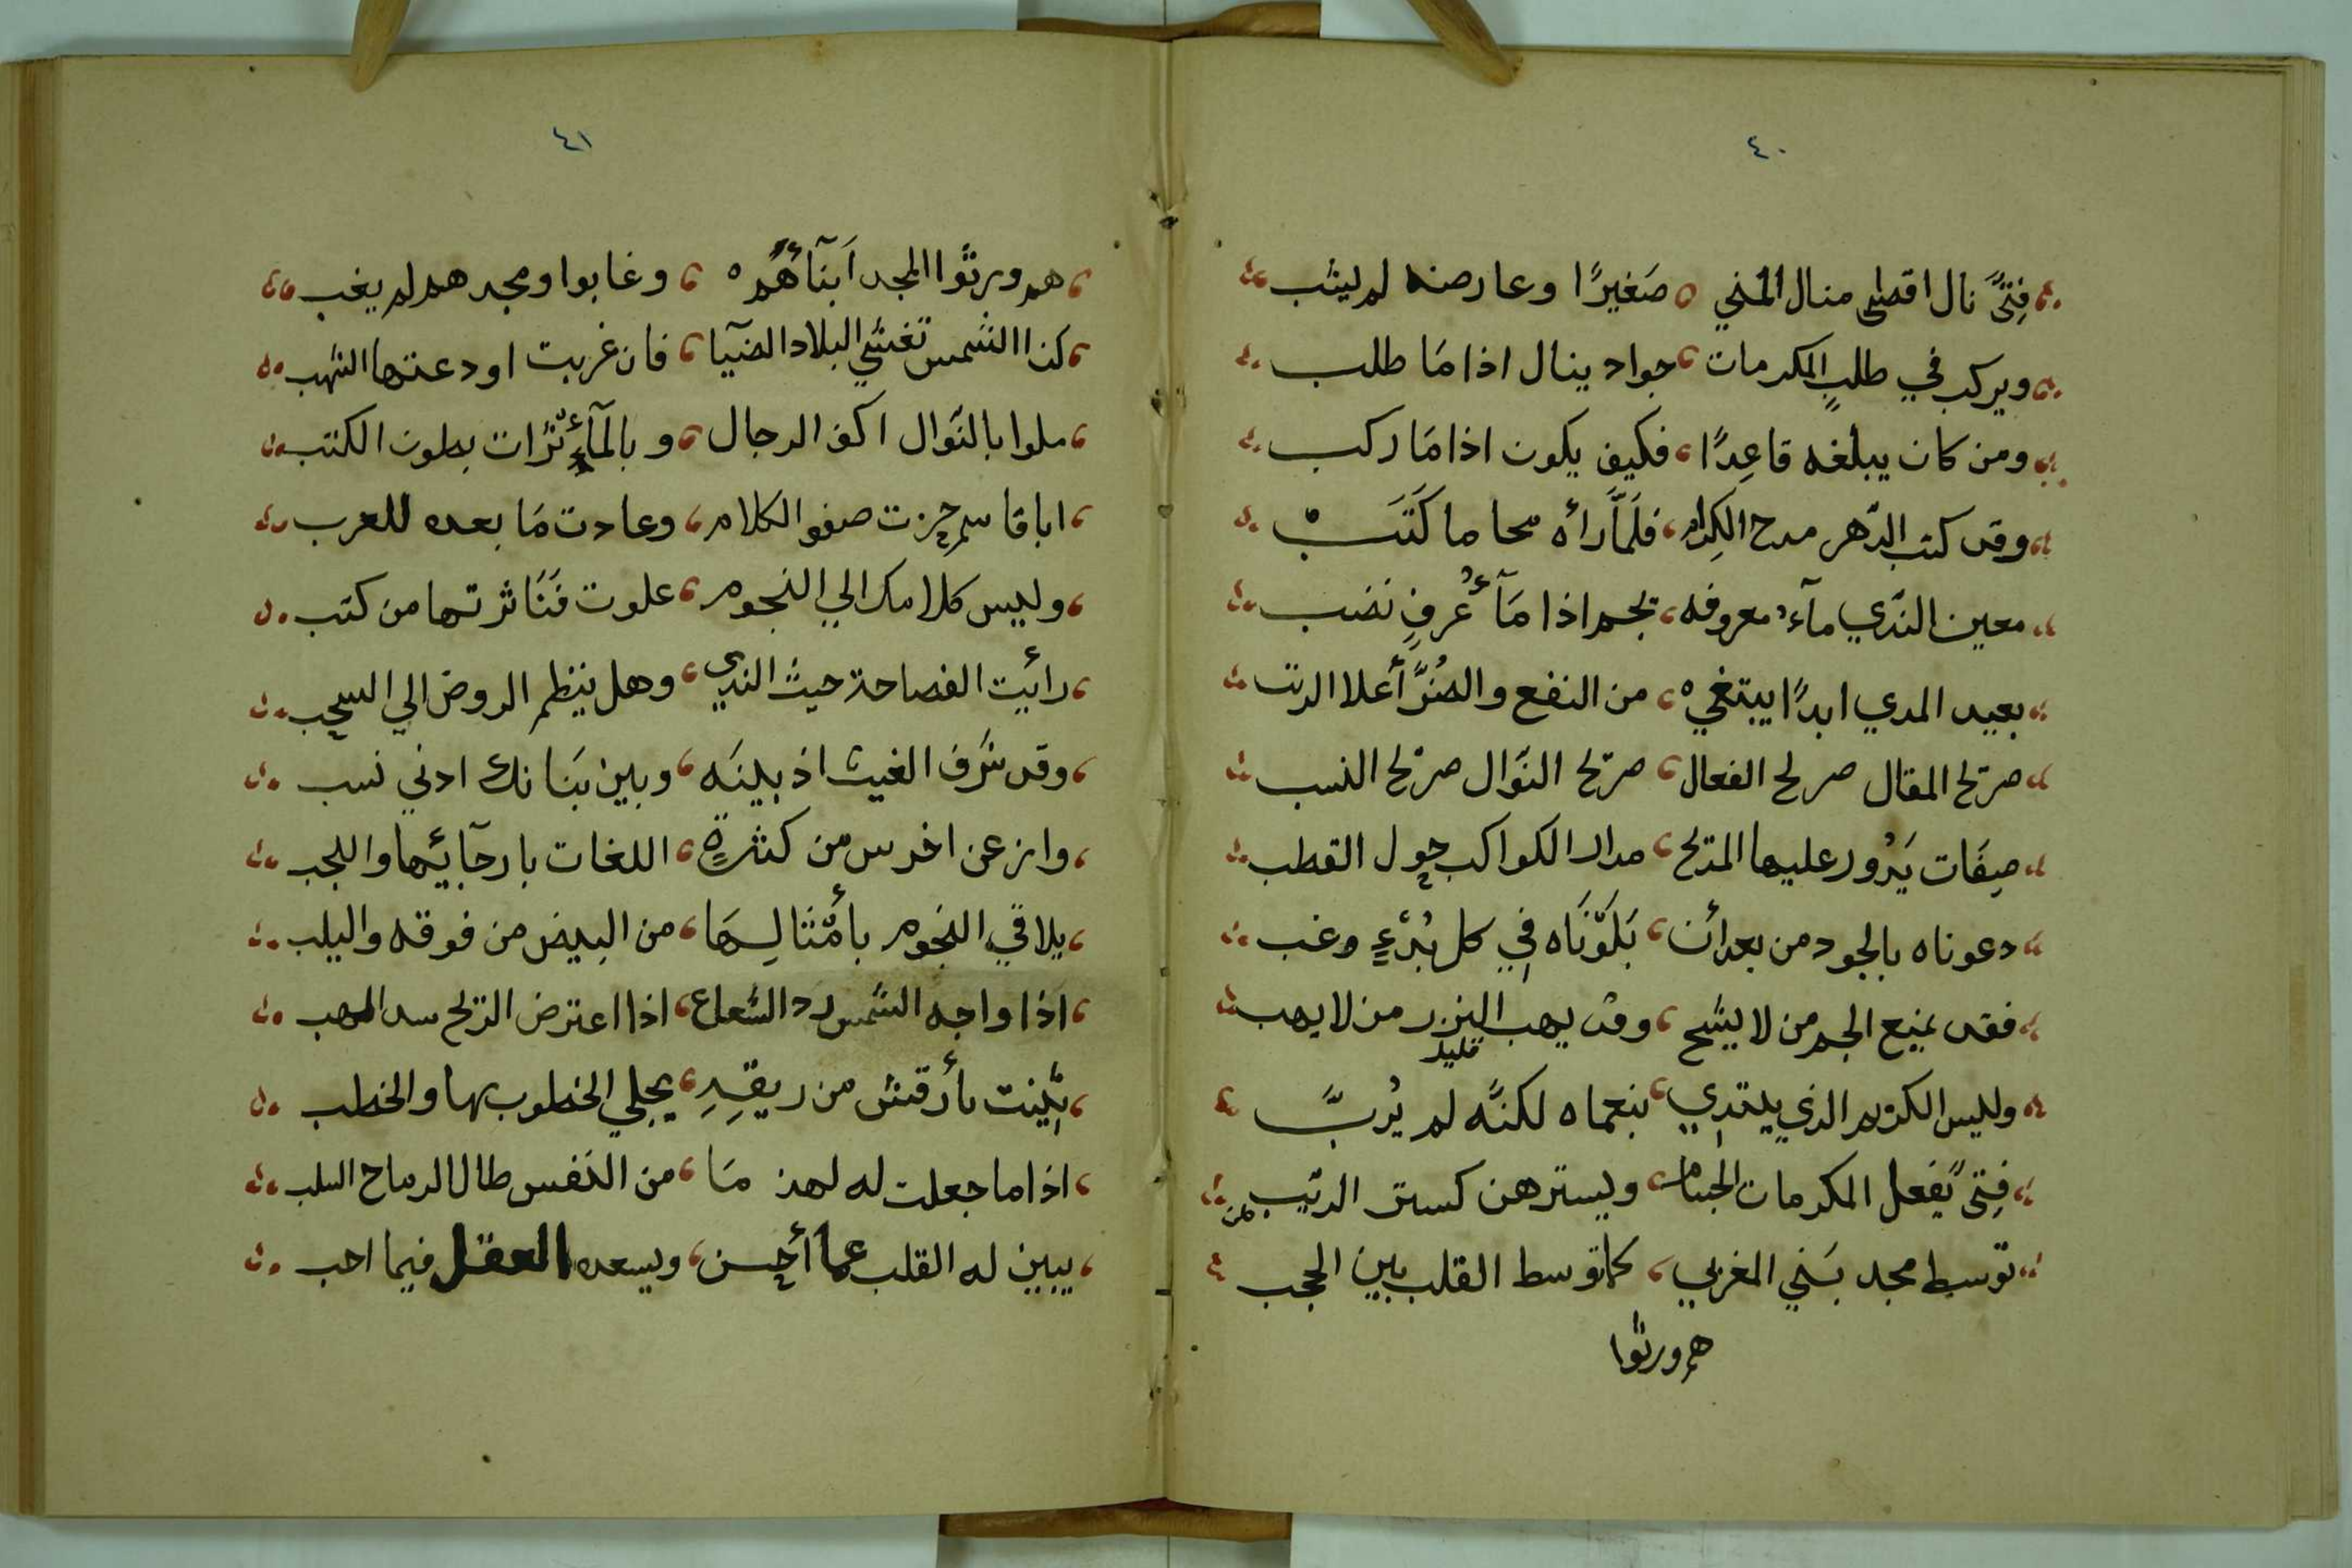 ٤٠
فِتىً نال اقصٰى منال المني ه صَغيرًا وعارضه لم يشب
ويركب في طلبِ المكرمات ، جواد ينال اذا مَا طلب
ومن كان يبلغه قاعِدًا ، فكيف يكون اذا مَا ركب
وقد كتب الدّهر مدح الكِرام ، فلَمَّا رأه محا ما كَتَبْ
معين النّدي مآءُ معروفه ، يجم اذا مَآءُ عُرفٍ نضب
بعيد المدي ابدًا يبتغيْ ه ، من النفع والضُرَّ أعلا الرتب
صريح المقال صريح الفعال ، صريح النوّال صريح النسب
صِفَات يَدُور عليها المديح ، مدار الكواكب حول القطب
دعوناه بالجود من بعد أن ، بَلَوْنَاه في كل بُدْءٍ وغب
فقد يمنع الجم من لا يشح ، وقد يهب النزر من لا يهب
قليل
وليس الكريم الذي يبتدي ، بنعماه لكنّه لم يُربَّ
فِتىً يفعل المكرمات الجسام ، ويسترهن كستر الرّيب
توسط مجد بَني المغربي ، كما توسط القلب بين الحجب
هم ورثوا
٤١
هم ورثوا المجد اَبنآءُهُم ه ، وغابوا ومجدهم لم يغب
كذا الشمس تغشي البلاد الضيآ ، فان غربت اودعتها الشهب
ملوا بالنّوال اكف الرجال ، وبالمآءثرات بطون الكتب
ابا قاسم حزت صفو الكلام ، وعادت مَا بعده للعرب
وليس كلامك الي النجوم ، علوت فَنَاثرتها من كتب
رأيت الفصاحة حيث الندي ، وهل ينظم الروض الي السحب
وقد شرف الغيث اذ بينَه ، وبين بَنانك ادني نسب
وارعن اخرس من كثرةٍ ، اللغات بارجآئها واللجب
يلاقي النجوم بأمْثالِهَا ، من البيض من فوقه واليلب
اذا واجه الشمس رد الشعاع ، اذا اعترض الريح سد المهب
بأرقش من ريقِهِ ، يجلي الخطوب بها والخطب
اذا ما جعلت له لهذ مَا ، من النفس طال الرماح السلب
يبين له القلب عما أحسن ، ويسعده العقل فيما احب